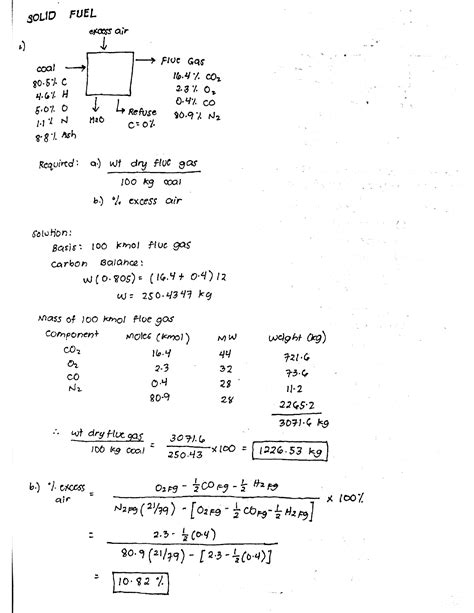 SOLID FUEL
excess air
1.)
Flue Gas
coal
16.4% CO₂
80.5% C
2.3% O₂
4.6% H
0.4% CO
5.0% O
80.9% N₂
1.1% N
H₂O
Refuse
C=0%
8.8% Ash
Required: a.) wt dry flue gas
100 kg coal
b.) % excess air
Solution:
Basis: 100 kmol flue gas
Carbon Balance:
W(0.805) = (16.4 + 0.4) 12
W = 250.4347 kg
Mass of 100 kmol flue gas
Component Moles (kmol) MW Weight (kg)
CO₂ 16.4 44 721.6
O₂ 2.3 32 73.6
CO 0.4 28 11.2
N₂ 80.9 28 2265.2
3071.6 kg
∴ wt dry flue gas = 3071.6 x100 = 1226.53 kg
100 kg coal 250.43
b.) % excess air = O₂FG - ½COFG - ½H₂FG x 100%
N₂FG (21/79) - [O₂FG - ½COFG - ½H₂FG]
= 2.3 - ½(0.4)
80.9(21/79) - [2.3 - ½(0.4)]
= 10.82 %